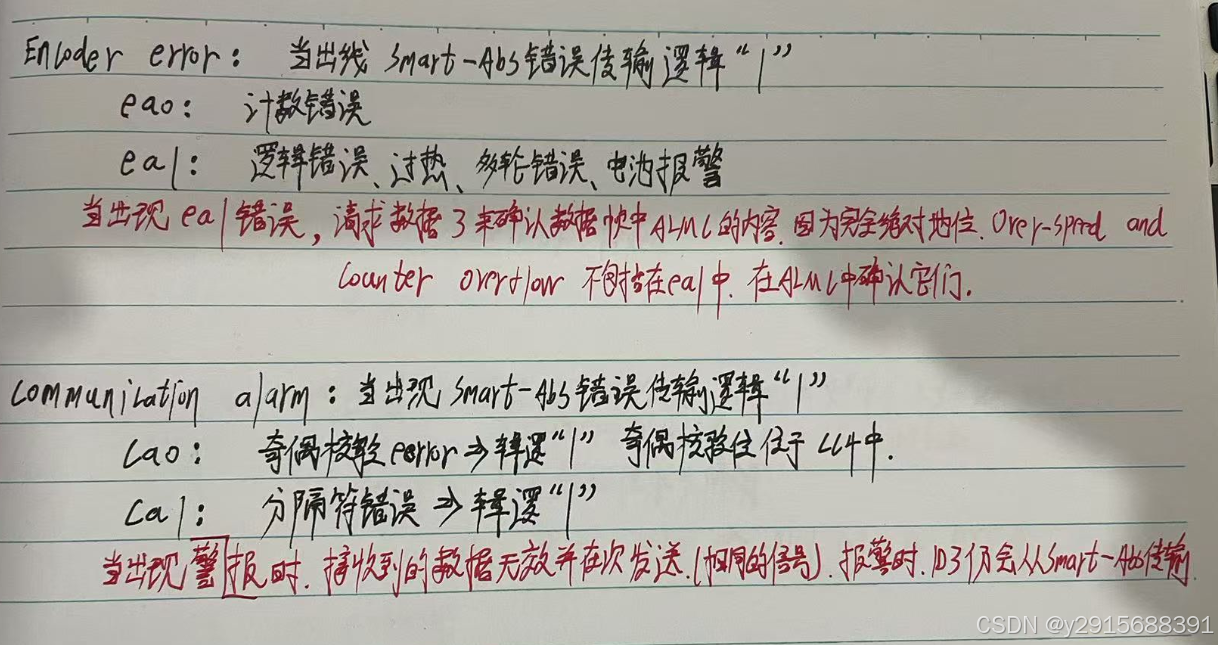 Encoder error: 当出线 Smart-Abs错误传输逻辑“1”
ea0: 计数错误
ea1: 逻辑错误、过热、多轮错误、电池报警
当出现ea1错误,请求数据3来确认数据帧中ALMC的内容.因为完全绝对地位.Over-speed and
Counter overflow 不包括在ea1中.在ALMC中确认它们.
Communication alarm:当出现Smart-Abs错误传输逻辑“1”
Ca0: 奇偶校验error⇒辑逻“1” 奇偶校验位位于CC4中.
Ca1: 分隔符错误⇒辑逻“1”
当出现警报时.接收到的数据无效并在次发送.(相同的信号).报警时.ID3仍会从Smart-Abs传输.
CSDN @y2915688391